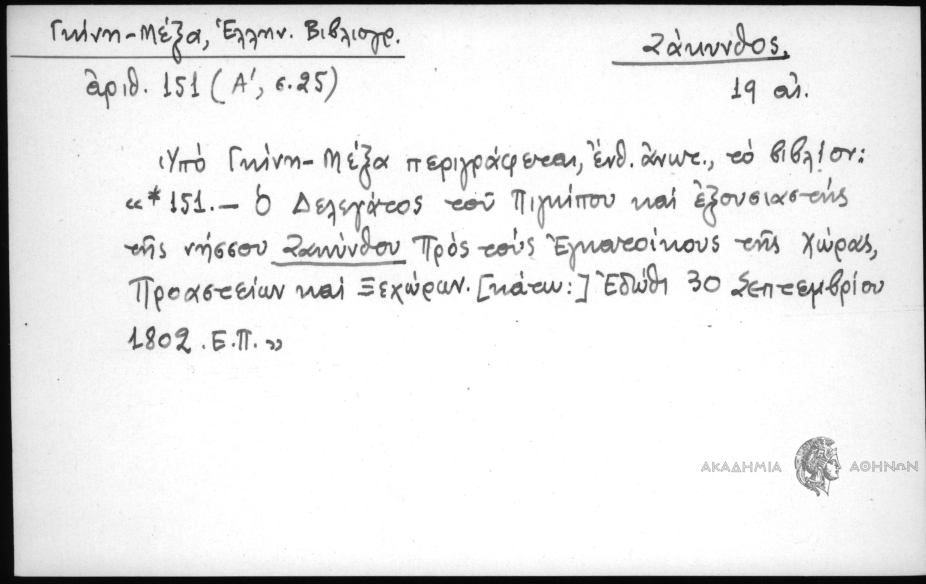 Γκίνη-Μέξα, Ἑλλην. Βιβλιογρ.
Ζάκυνθος.
ἀριθ. 151 (Α', σ.25)
19 αἰ.
Ὑπό Γκίνη-Μέξα περιγράφεται, ἔνθ. ἀνωτ., τό βιβλίον:
«*151.— Ὁ Δελεγάτος τοῦ Πιγκίπου καί ἐξουσιαστής
τῆς νήσσου Ζακύνθου Πρός τούς Ἐγκατοίκους τῆς Χώρας,
Προαστείων καί Ξεχώρων. [κάτω:] Ἐδώθι 30 Σεπτεμβρίου
1802. Ε.Π.»
ΑΚΑΔΗΜΙΑ ΑΘΗΝΩΝ